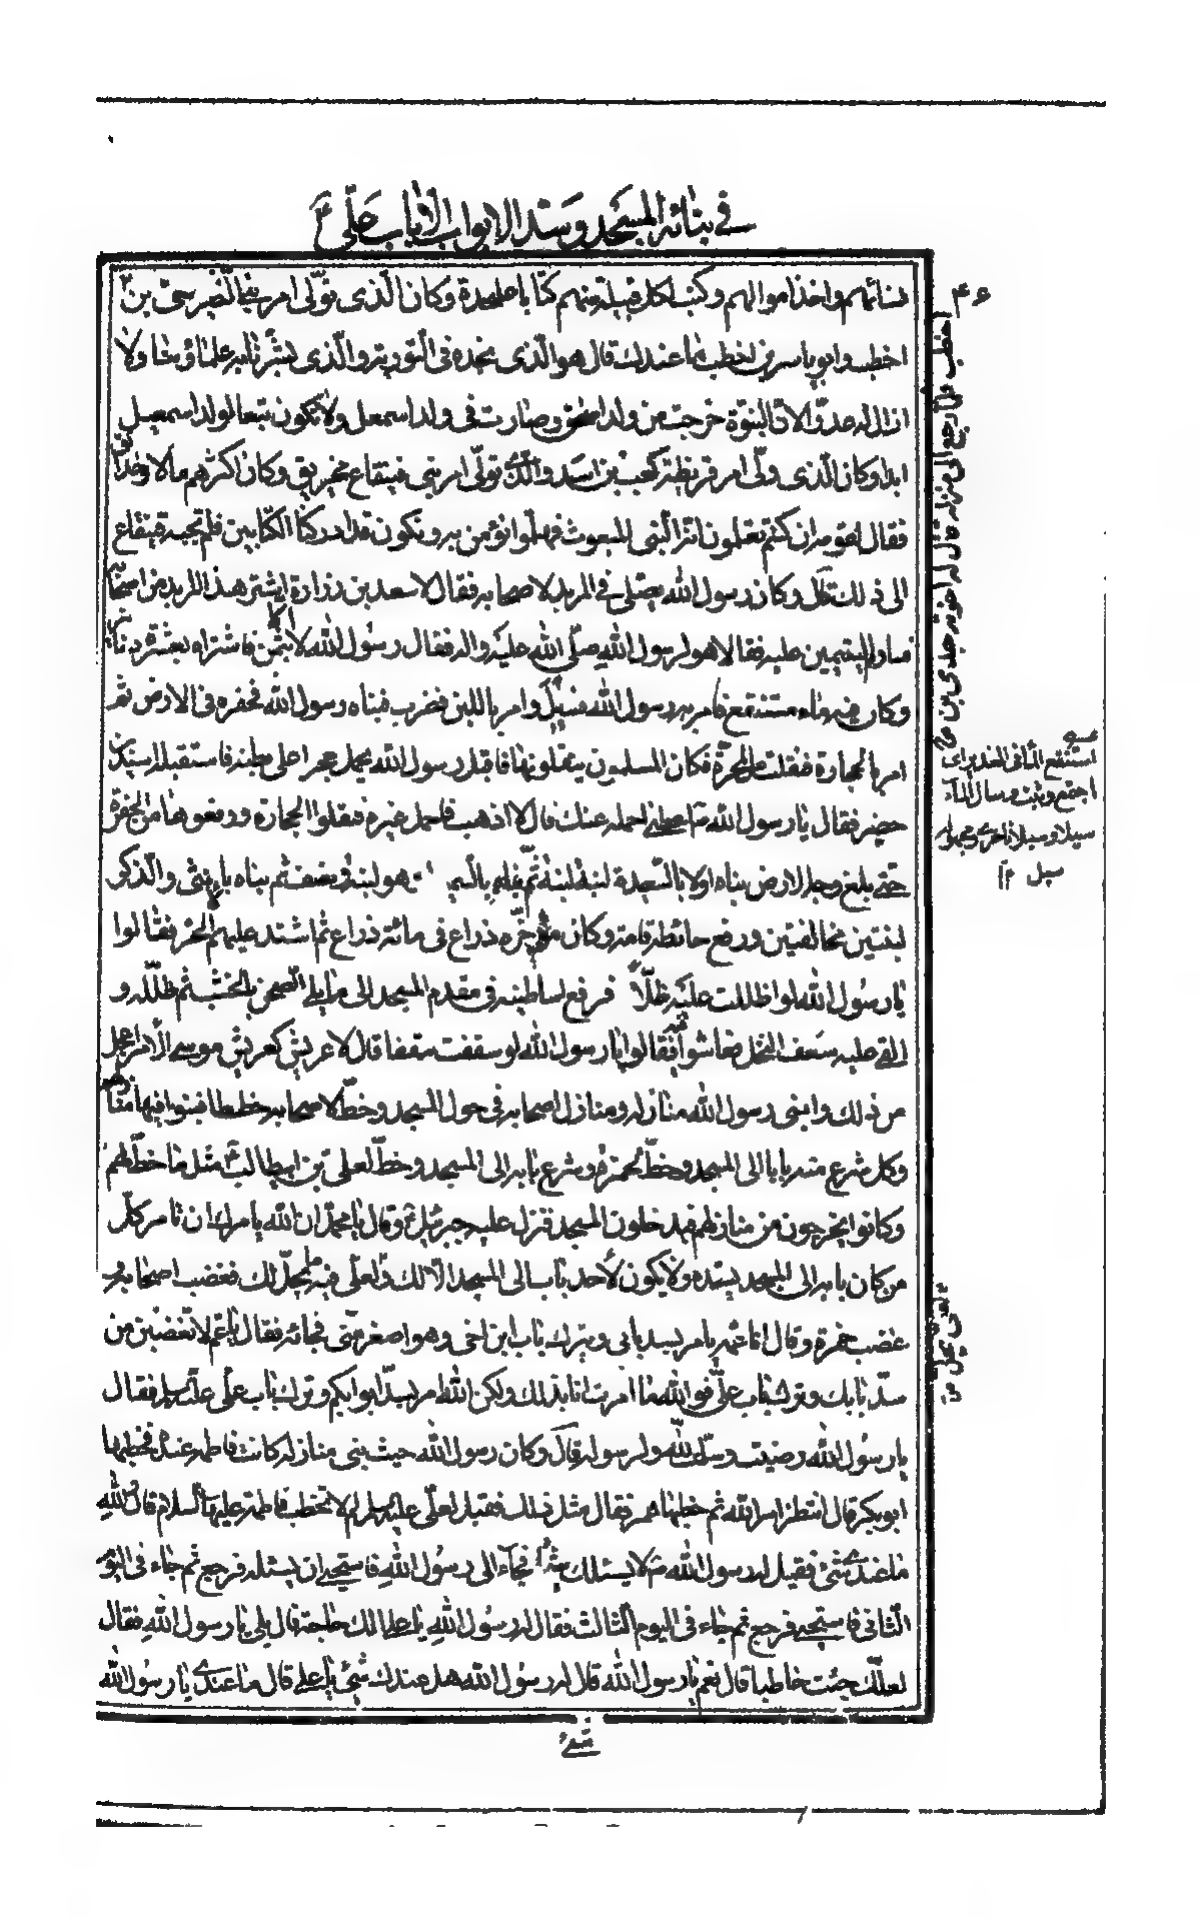 في بنائه المسجد وسد الابواب الا باب علي ع
٤۶
نسائهم واخذ اموالهم وكتب لكل قبيلة منهم كتابا على حدة وكان الذى تولى امر بني النضير حيى بن
اخطب وابو ياسر بن اخطب ما عندك قال هو الذى نجده في التورية والذى بشرنا به علماؤنا ولا
ازال له عدوا لان النبوة خرجت من ولد اسحق وصارت في ولد اسمعيل ولا نكون تبعا لولد اسمعيل
ابدا وكان الذى ولى امر قريظة كعب بن اسد والذي تولى امر بني قينقاع مخيريق وكان اكثرهم مالا وحدائق
فقال لقومه ان كنتم تعلمون انه النبي المبعوث فهلموا نؤمن به ونكون قد ادركنا الكتابين فلم تجبه قينقاع
الى ذلك قال وكان رسول الله يصلي في المربد لاصحابه فقال لاسعد بن زرارة اشتر هذا المربد من اصحابه
فساوم اليتيمين عليه فقالا هو لرسول الله صلى الله عليه واله فقال رسول الله لا الا بثمن فاشتراه بعشرة دنانير
وكان فيه ماء مستنقع فامر به رسول الله فسيل وامر باللبن فضرب فبناه رسول الله فحفره في الارض ثم
امر بالحجارة فنقلت من الحرة فكان المسلمون ينقلونها فاقبل رسول الله يحمل حجرا على بطنه فاستقبله اسيد بن
حضير فقال يا رسول الله ص اعطني احمله عنك قال لا اذهب فاحمل غيره فنقلوا الحجارة ورفعوها من الحفرة
حتى بلغ وجه الارض بناه اولا بالسعيدة لبنة لبنة ثم بناه بالسميط وهو لبنة ونصف ثم بناه بالانثى والذكر
لبنتين مخالفتين ورفع حائطه قامة وكان مؤخره ذراع في مائة ذراع ثم اشتد عليهم الحر فقالوا
يا رسول الله لو اظللت عليه ظلا فرفع اساطينه في مقدم المسجد الى ما يلي الصحن بالخشب ثم ظلله و
القى عليه سعف النخل فعاشوا فيه فقالوا يا رسول الله لو سقفت سقفا قال لا عريش كعريش موسى الامر اعجل
من ذلك وابتنى رسول الله منازله ومنازل اصحابه في حول المسجد وخط لاصحابه خططا فبنوا فيها منازلهم
وكل شرع منه بابا الى المسجد وخط لحمزة وشرع بابه الى المسجد وخط لعلي بن ابيطالب ع مثل ما خط لهم
وكانوا يخرجون من منازلهم فيدخلون المسجد فنزل عليه جبرئيل ع وقال يا محمد ان الله يامرك ان تامر كل
من كان بابه الى المسجد يسده ولا يكون لاحد باب الى المسجد الا لك ولعلي ع ويحل لعلي فيه ما يحل لك فغضب اصحابه و
غضب حمزة وقال انا عمه يامر بسد بابي ويترك باب ابن اخي وهو اصغر مني فجائه فقال يا عم لا تغضبن من
سد بابك وترك باب علي فو الله ما انا امرت بذلك ولكن الله امر بسد ابوابكم وترك باب علي عليه السلم فقال
يا رسول الله رضيت وسلمت لله ولرسوله قال وكان رسول الله حيث بنى منازله كانت فاطمة عنده فخطبها
ابو بكر فقال انتظر امر الله ثم خطبها عمر فقال مثل ذلك فقيل لعلي عليه السلم لم لا تخطب فاطمة عليها السلام فقال والله
ما عندي شئ فقيل له رسول الله ص لا يسئلك شيئا فجاء الى رسول الله فاستحيى ان يسئله فرجع ثم جاء في اليوم
الثاني فاستحيى فرجع ثم جاء في اليوم الثالث فقال له رسول الله يا علي الك حاجة قال بلى يا رسول الله فقال
لعلك جئت خاطبا قال نعم يا رسول الله قال له رسول الله هل عندك شئ يا علي قال ما عندي يا رسول الله
شئ
استنقع الماء في الغدير اى
اجتمع وثبت وسال الماء
سيلا وسيلانا جرى
سيل